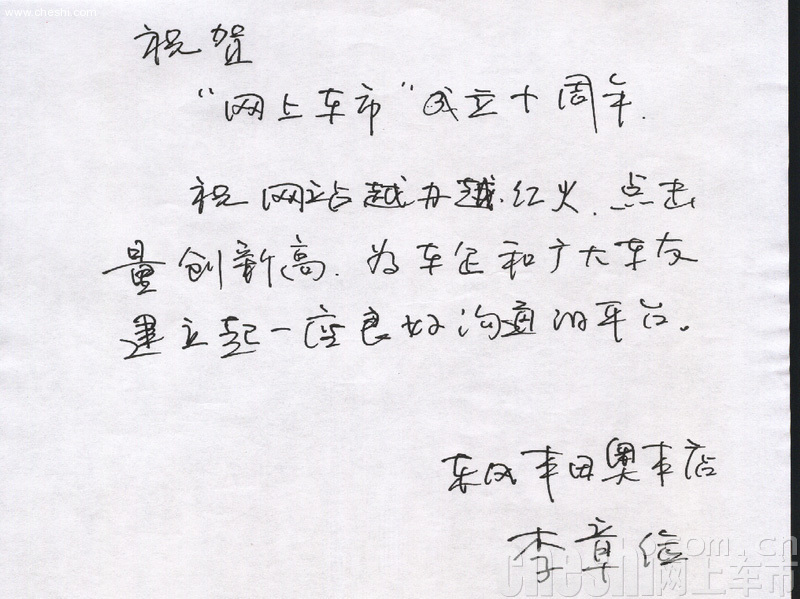 www.cheshi.com
祝贺
“网上车市”成立十周年.
祝网站越办越红火.点击
量创新高.为车企和广大车友
建立起一座良好沟通的平台。
东风丰田奥丰店
李章信
cheshi.com.cn
网上车市